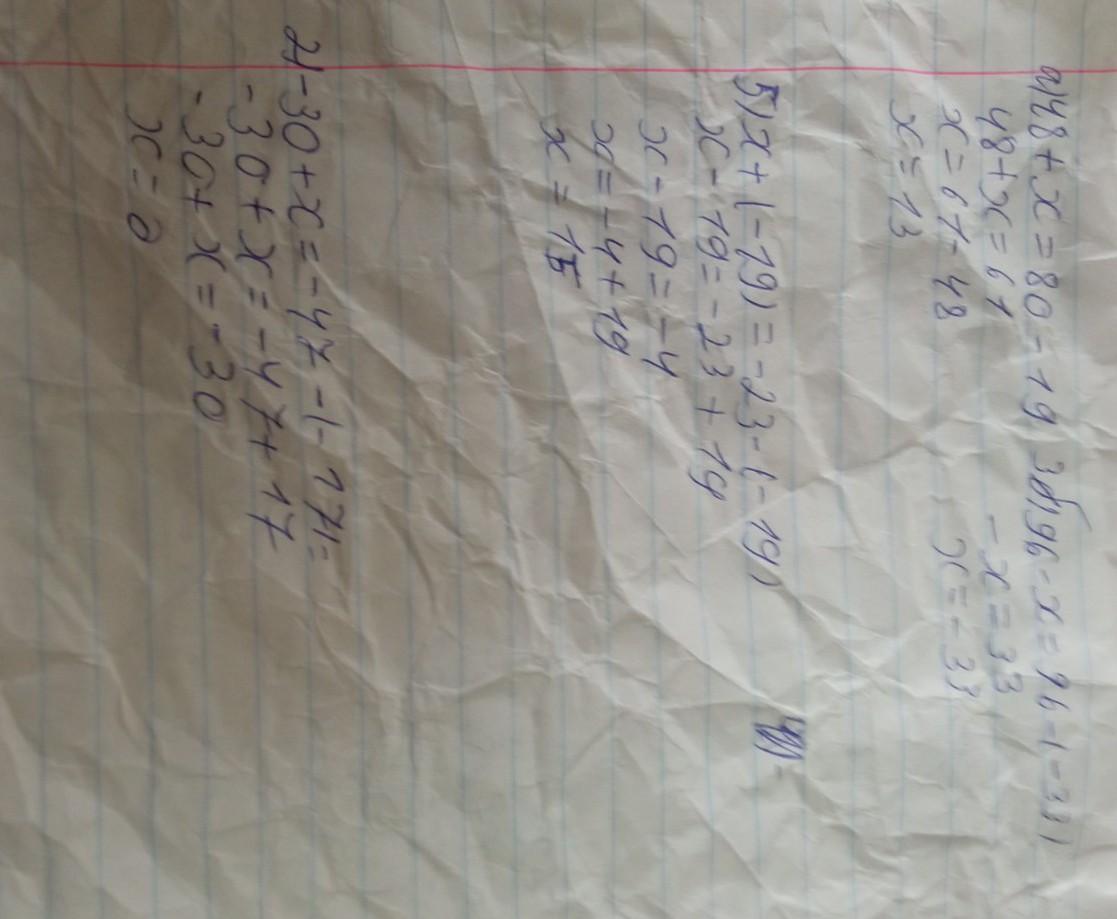 а) 48 + x = 80 - 19
48 + x = 61
x = 61 - 48
x = 13
3б) 96 - x = 96 - (-33)
- x = 33
x = - 33
5) x + (-19) = -23 - (-19)
x - 19 = -23 + 19
x - 19 = -4
x = -4 + 19
x = 15
-30 + x = -47 - (-17) =
-30 + x = -47 + 17
-30 + x = -30
x = 0